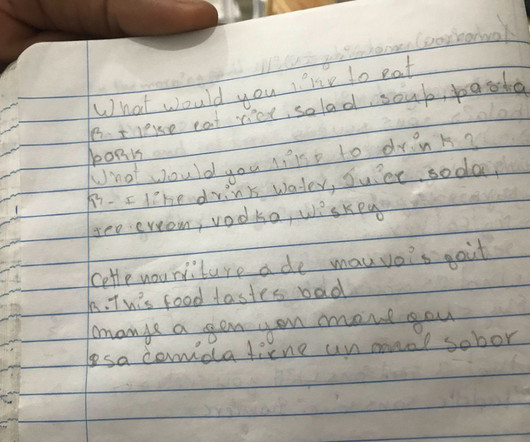 What would you like to eat
R-I like eat rice, salad, soup, pasta
pork
What would you like to drink?
R-I like drink water, Juice, soda,
Ice cream, vodka, wiskey
cette nourriture a de mauvais goût
R. This food tastes bad
manje a gen yon move gou
esa comida tiene un mal sabor